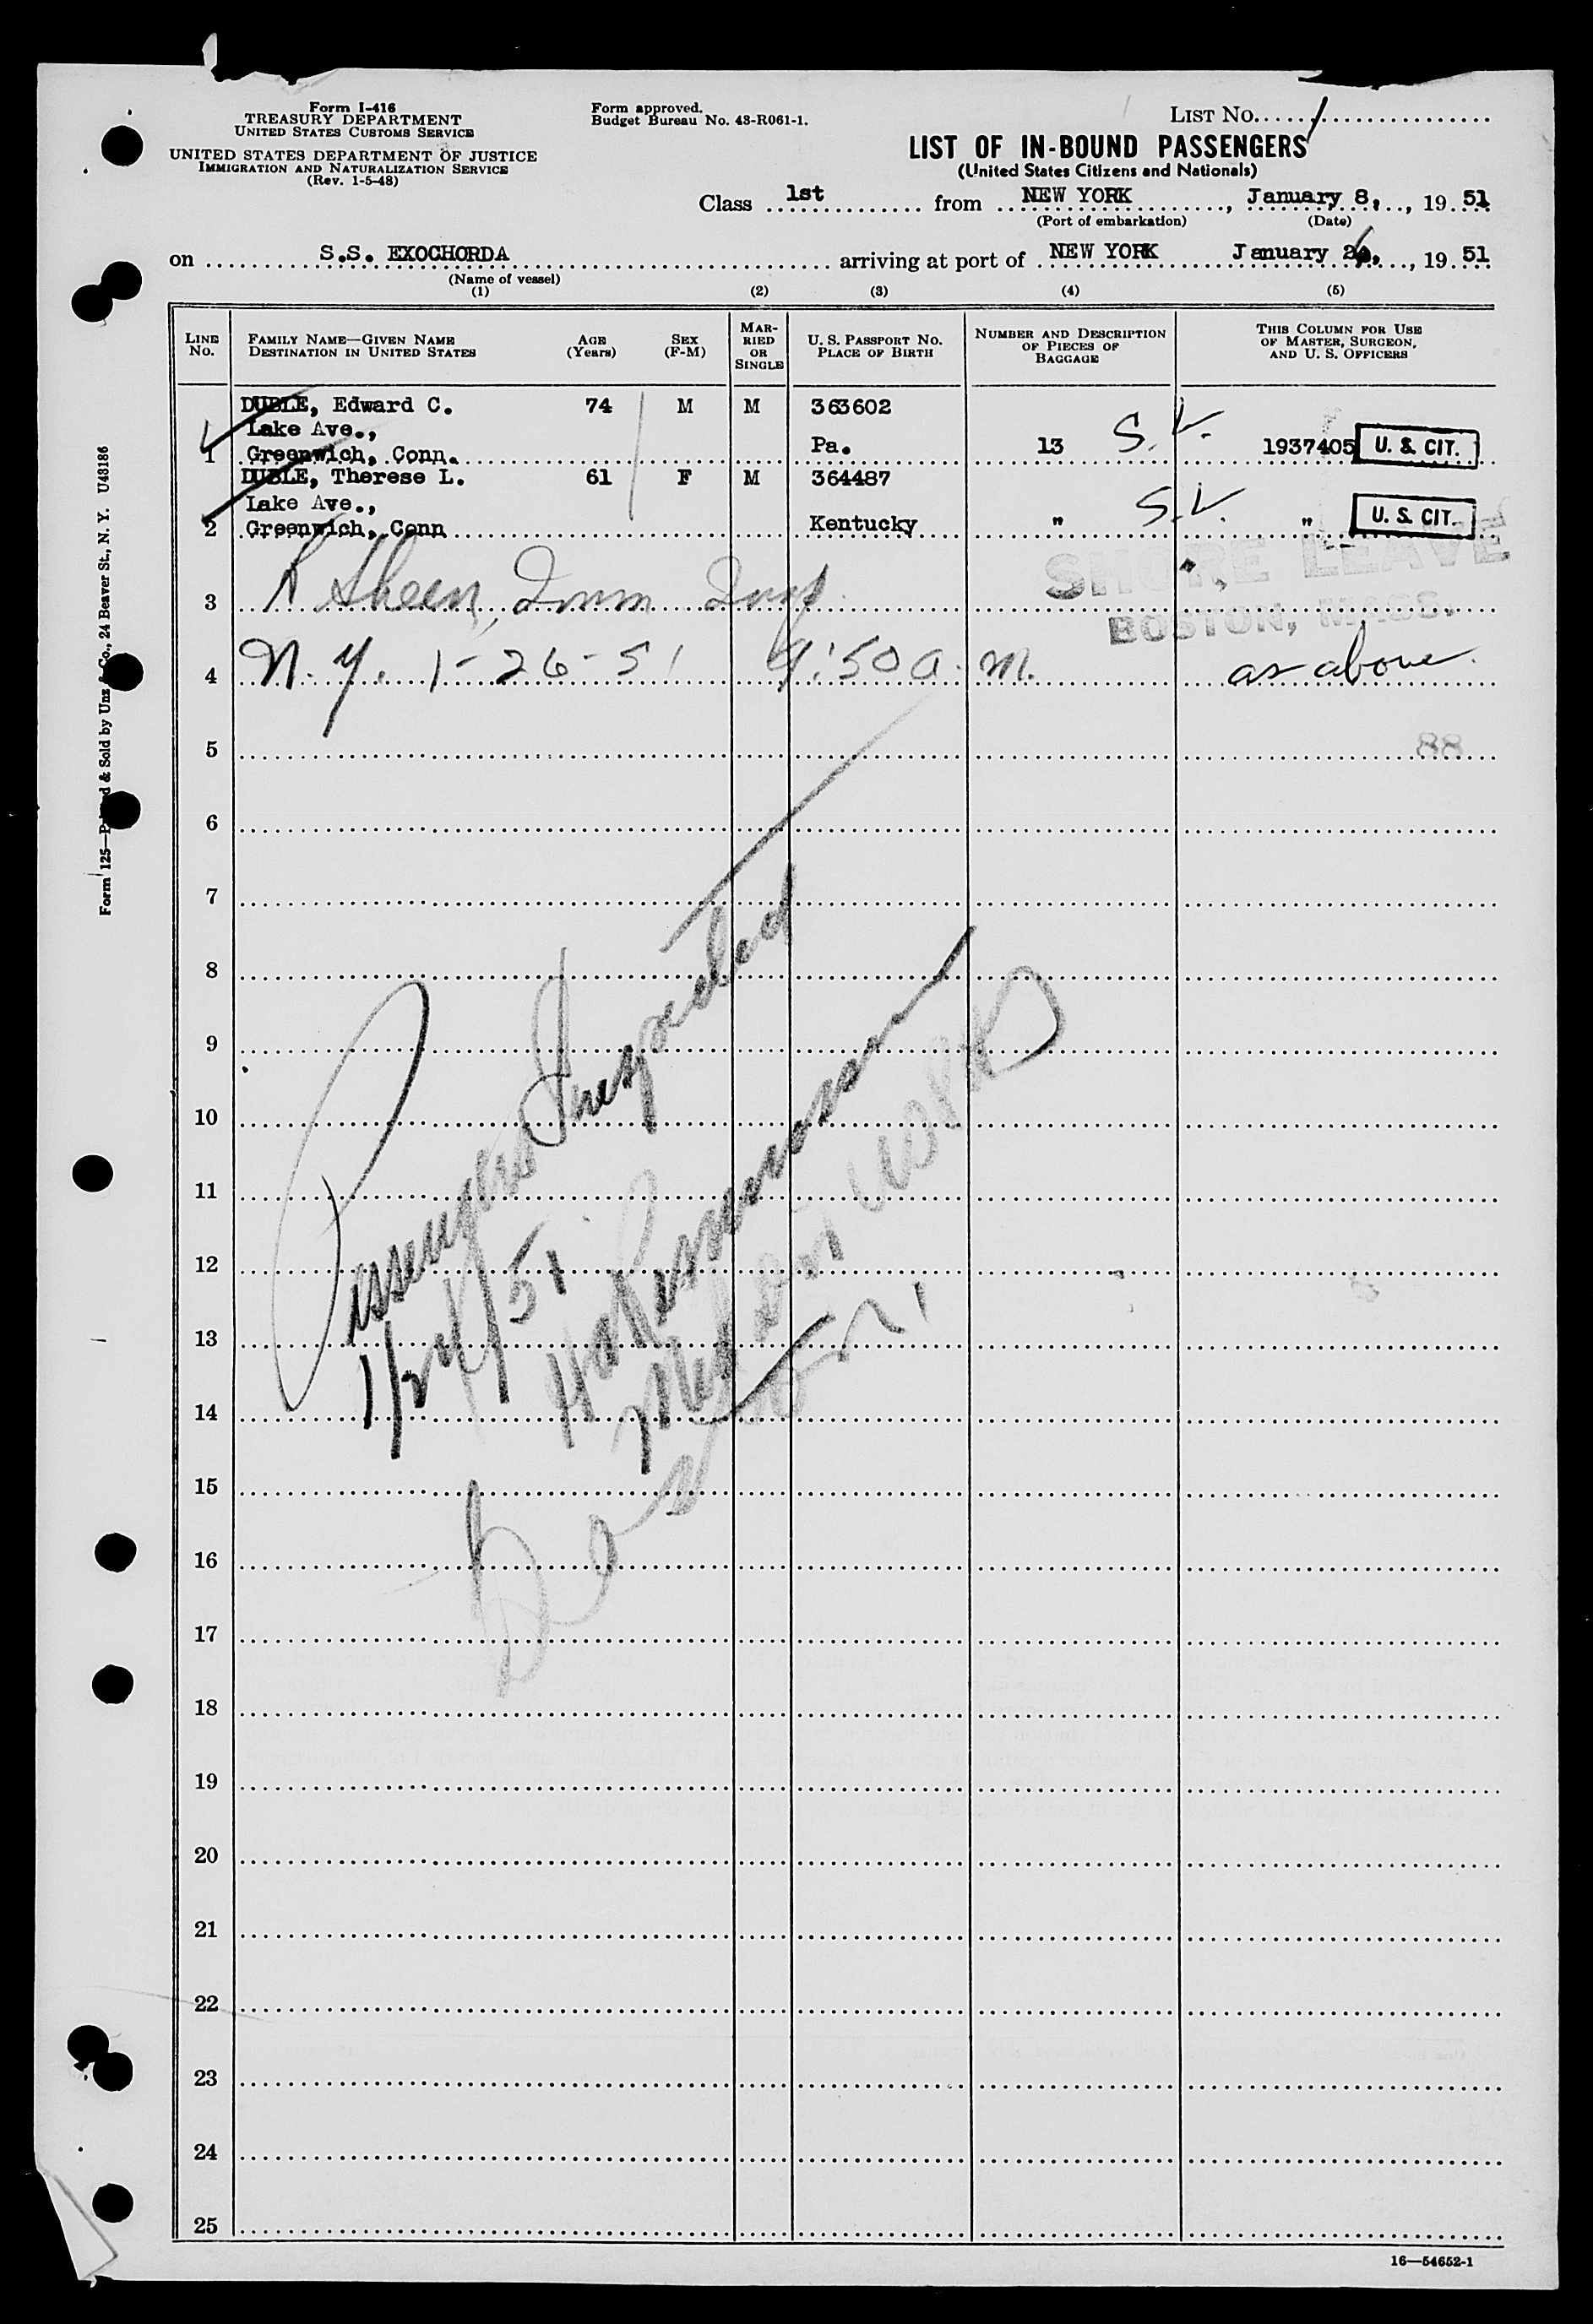 Form I-416
TREASURY DEPARTMENT
UNITED STATES CUSTOMS SERVICE
UNITED STATES DEPARTMENT OF JUSTICE
IMMIGRATION AND NATURALIZATION SERVICE
(Rev. 1-5-48)
Form approved.
Budget Bureau No. 43-R061-1.
LIST No. 1
LIST OF IN-BOUND PASSENGERS
(United States Citizens and Nationals)
Class 1st from NEW YORK, January 8, 1951
(Port of embarkation) (Date)
on S.S. EXOCHORDA arriving at port of NEW YORK January 26, 1951
(Name of vessel)
(1) (2) (3) (4) (5)
LINE No.
FAMILY NAME—GIVEN NAME
DESTINATION IN UNITED STATES
AGE (Years)
SEX (F-M)
MARRIED OR SINGLE
U. S. PASSPORT No.
PLACE OF BIRTH
NUMBER AND DESCRIPTION OF PIECES OF BAGGAGE
THIS COLUMN FOR USE OF MASTER, SURGEON, AND U. S. OFFICERS
DUBLE, Edward C. 74 M M 363602
Lake Ave.,
1 Greenwich, Conn. Pa. 13 S.L. 1937405 U. S. CIT.
DUBLE, Therese L. 61 F M 364487
Lake Ave.,
2 Greenwich, Conn Kentucky " S.L. " U. S. CIT.
SHORE LEAVE
BOSTON, MASS.
3
4 N.Y. 1-26-51 9:50 a.m. as above
88
5
6
7
8
9
10
11
12
13
14
15
16
17
18
19
20
21
22
23
24
25
Passengers Inspected
1/24/51
Boston
16—54652-1
Form 125—Printed & Sold by Unz & Co., 24 Beaver St., N. Y. U43186